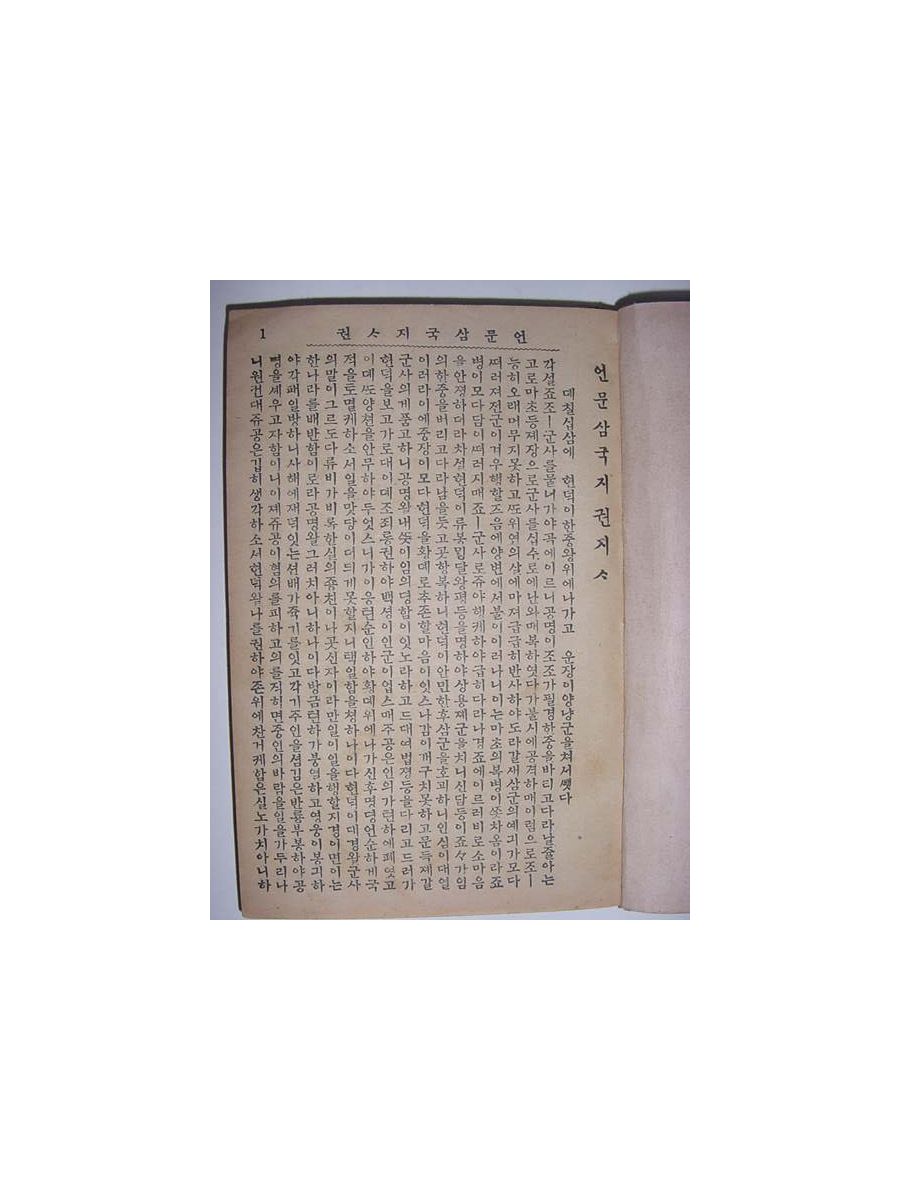 언문삼국지권지ᄉ
언문삼국지ᄉ권
1
뎨칠십삼에 현덕이한중왕위에나가고 운장이양양군을쳐서ᄲᅢᆺ다
각셜죠조ㅣ군사를물녀가야곡에이르니공명이조조가필경하중을바리고다라날줄아는
고로마초등졔장으로군사를십수로에난와매복하엿다가불시에공격하매이럼으로조ㅣ
능히오래머무지못하고ᄯᅩ위연의상에마져급급히반사하야도라갈새삼군의예긔가모다
ᄯᅥ러져전군이겨우행할즈음에양변에서불이이러나니이는마초의복병이ᄶᅩᆺ차옴이라죠
병이모다담이ᄯᅥ러지매죠ㅣ군사로쥬야해케하야급히다라나경죠에이르러비로소마음
을안졍하더라차셜현덕이류봉밍달왕평등을명하야상용졔군을치니신탐등이죠々가임
의한중을버리고다라남을듯고곳항복하니현덕이안민한후삼군을호괴하니인심이대열
이러라이에중장이모다현덕을황뎨로추존할마음이잇스나감이개구치못하고문득졔갈
군사의게품고하니공명왈내ᄯᅳᆺ이임의뎡함이잇노라하고드대여법졍등을다리고드러가
현덕을보고가로대이뎨조죄롱권하야백셩이인군이업스매주공은인의가련하에폐엿고
이뎨ᄯᅩ양쳔을안무하야두엇스니가이응련순인하야황뎨위에나가신후명뎡언순하게국
젹을토멸케하소서일을맛당이더듸게못할지니택일함을쳥하나이다현덕이대경왈군사
의말이그르도다류비가비록한실의죵친이나곳신자이라만일이일을행할지경이면이는
한나라를배반함이로라공명왈그러치아니하나이다방금련하가붕열하고영웅이봉긔하
야각패일방하니사해에재덕잇는션배가쥭기를잇고각기주인을셤김은반룡부봉하야공
명을셰우고자함이니이졔쥬공이혐의를피하고의를직히면중인의바람을일을가두리나
니원컨대쥬공은깁히생각하소서현덕왈나를권하야존위에찬거케함은실노가치아니하